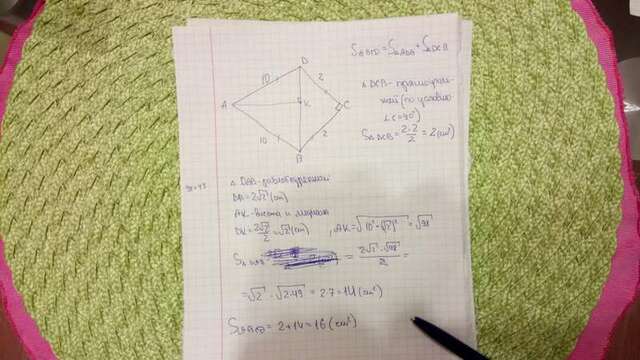 S ABCD = S△ADB + S△DCB
D
10
2
A
K
C
10
2
B
△ DCB - прямоуголь-
ный (по условию
∠C=90°)
S△DCB = 2·2/2 = 2 (cm²)
△ DAB - равнобедренный
DB = 2√2 (cm)
AK - высота и медиана
DK = 2√2/2 = √2 (cm) , AK = √10² - (√2)² = √98
S△ADB = 2√2 · √98/2 =
= √2 · √2·49 = 2·7 = 14 (cm²)
S ABCD = 2+14 = 16 (cm²)